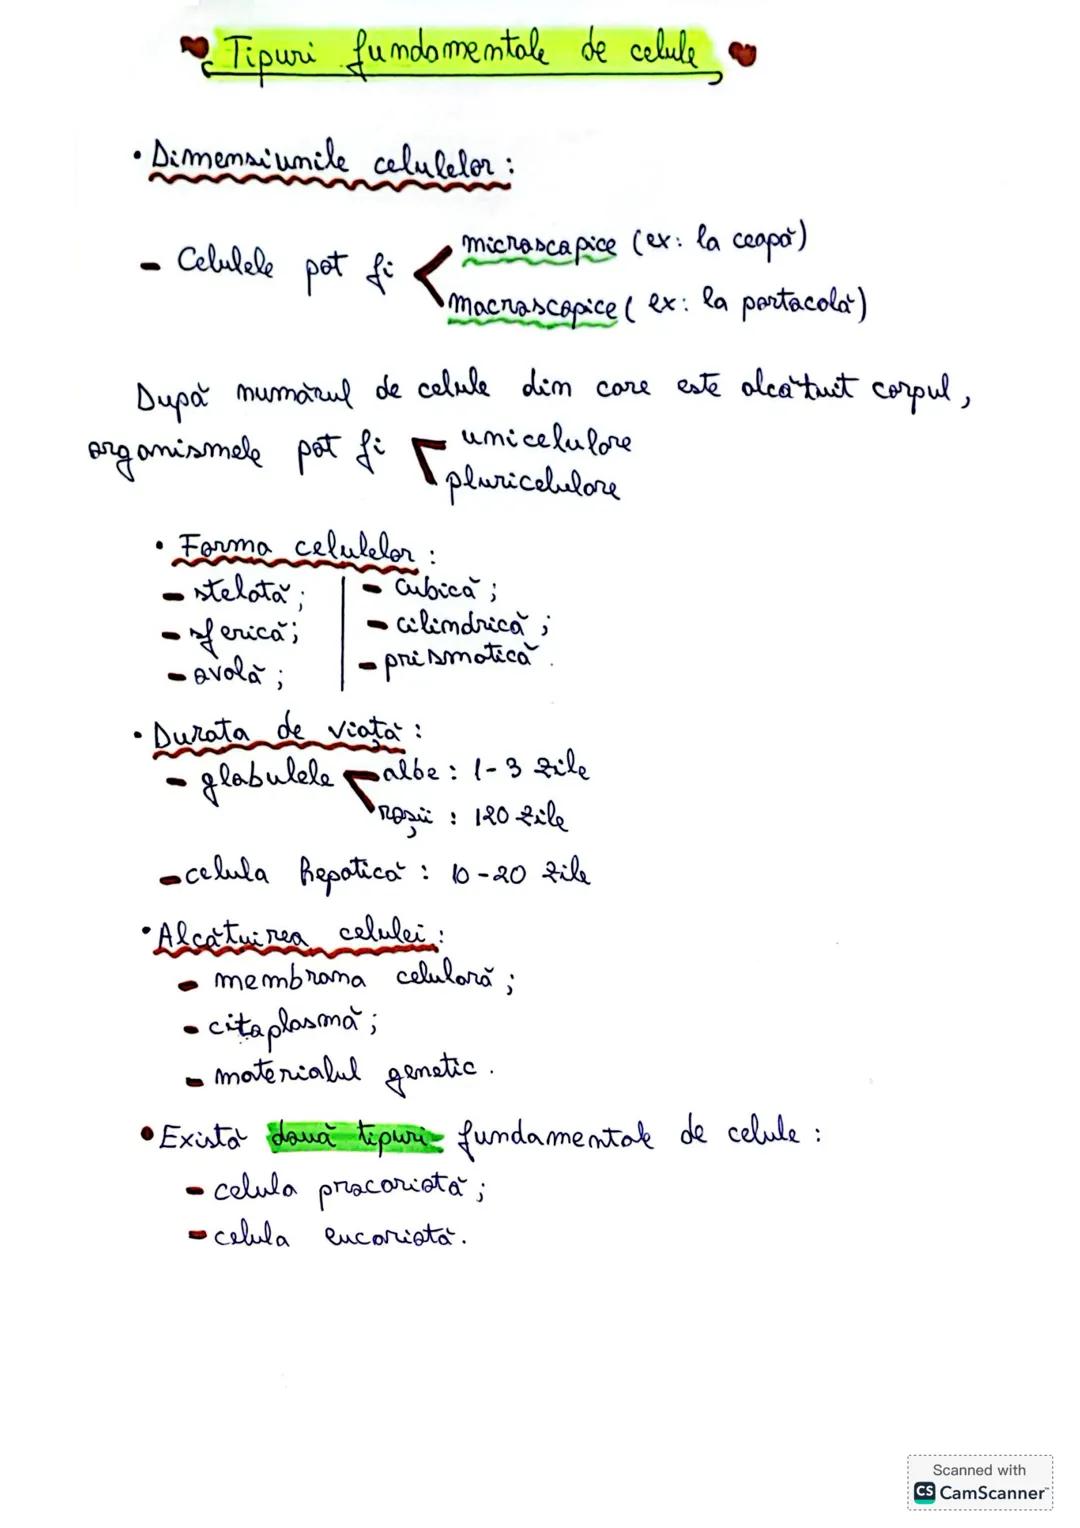 Tipuri fundamentale de celule
• Dimensiunile celulelor :
- Celulele pot fi
microscopice (ex: la ceapă)
macroscopice ( ex: la portocală)
După numărul de celule din care este alcătuit corpul,
organismele pot fi
unicelulare
pluricelulare
• Forma celulelor :
- stelată ;
- sferică;
- ovală ;
- cubică ;
- cilindrică ;
- prismatică .
• Durata de viață :
- globulele
albe : 1-3 zile
roșii : 120 zile
- celula hepatică : 10-20 zile
• Alcătuirea celulei :
- membrana celulară ;
- citoplasmă ;
- materialul genetic .
• Există două tipuri fundamentale de celule :
- celula procariotă ;
- celula eucariotă .
Scanned with
CS CamScanner